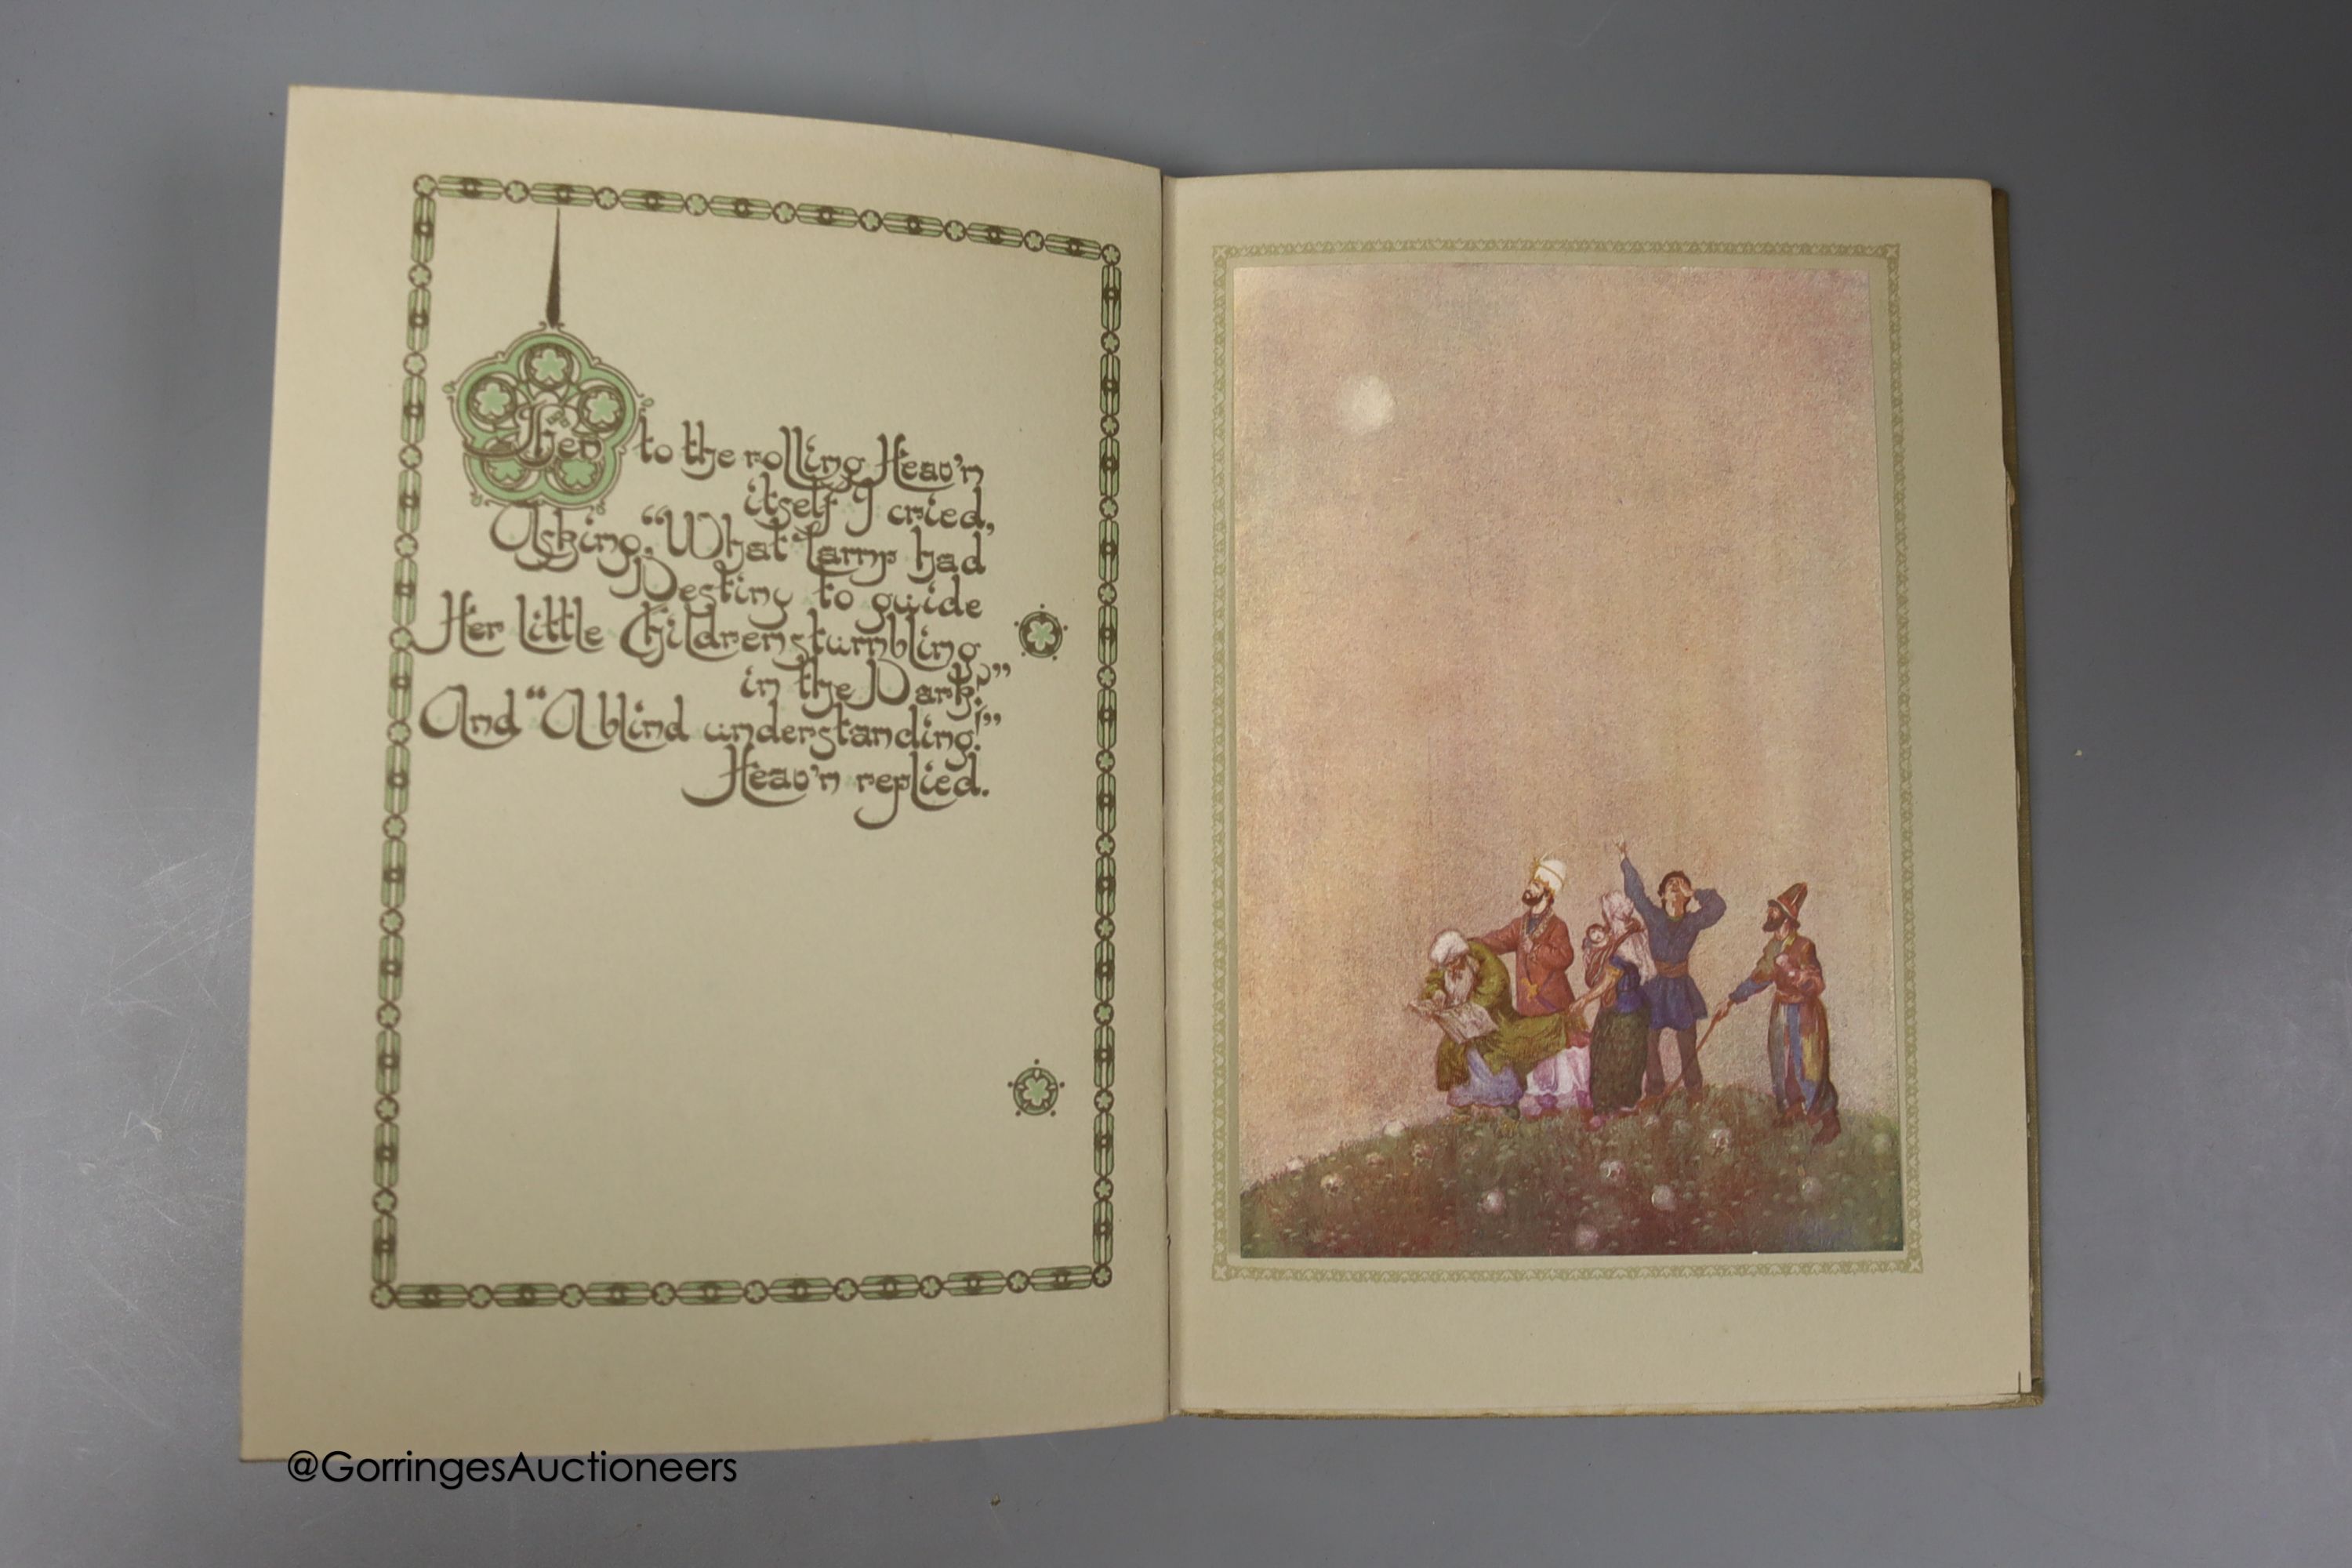 Then to the rolling Heav'n
itself I cried,
Asking, "What Lamp had
Destiny to guide
Her little Children stumbling
in the Dark?"
And "A blind understanding!"
Heav'n replied.
@GorringesAuctioneers